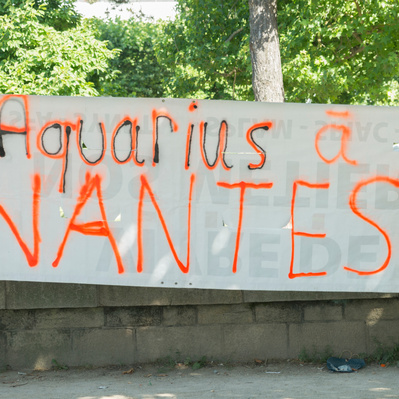 Aquarius à
NANTES